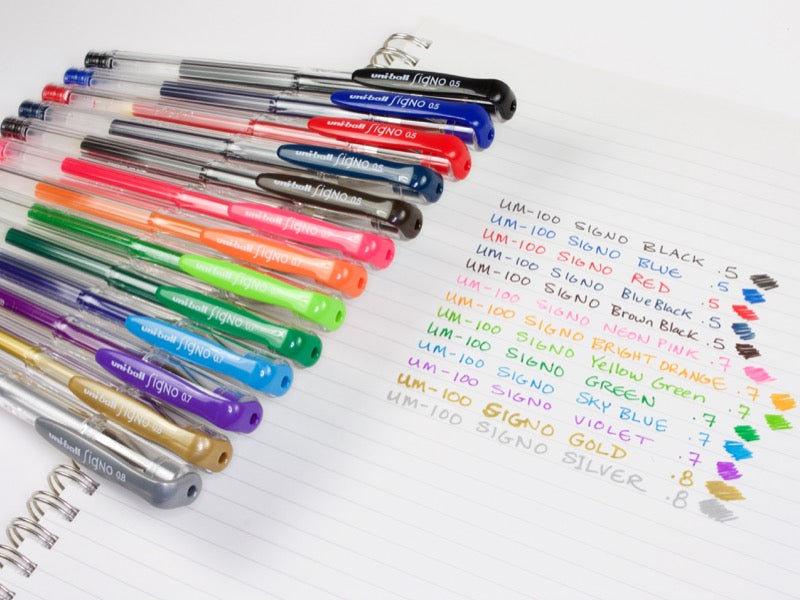 uni-ball Signo 0.5
uni-ball Signo 0.5
uni-ball Signo 0.5
uni-ball Signo 0.5
uni-ball Signo 0.5
uni-ball Signo 0.7
uni-ball Signo 0.7
uni-ball Signo 0.7
uni-ball Signo 0.7
uni-ball Signo 0.7
uni-ball Signo 0.7
uni-ball Signo 0.8
uni-ball Signo 0.8
UM-100 SIGNO BLACK .5
UM-100 SIGNO BLUE .5
UM-100 SIGNO RED .5
UM-100 SIGNO BlueBlack .5
UM-100 SIGNO Brown Black .5
UM-100 SIGNO NEON PINK .7
UM-100 SIGNO BRIGHT ORANGE .7
UM-100 SIGNO Yellow Green .7
UM-100 SIGNO GREEN .7
UM-100 SIGNO SKY BLUE .7
UM-100 SIGNO VIOLET .7
UM-100 SIGNO GOLD .8
UM-100 SIGNO SILVER .8